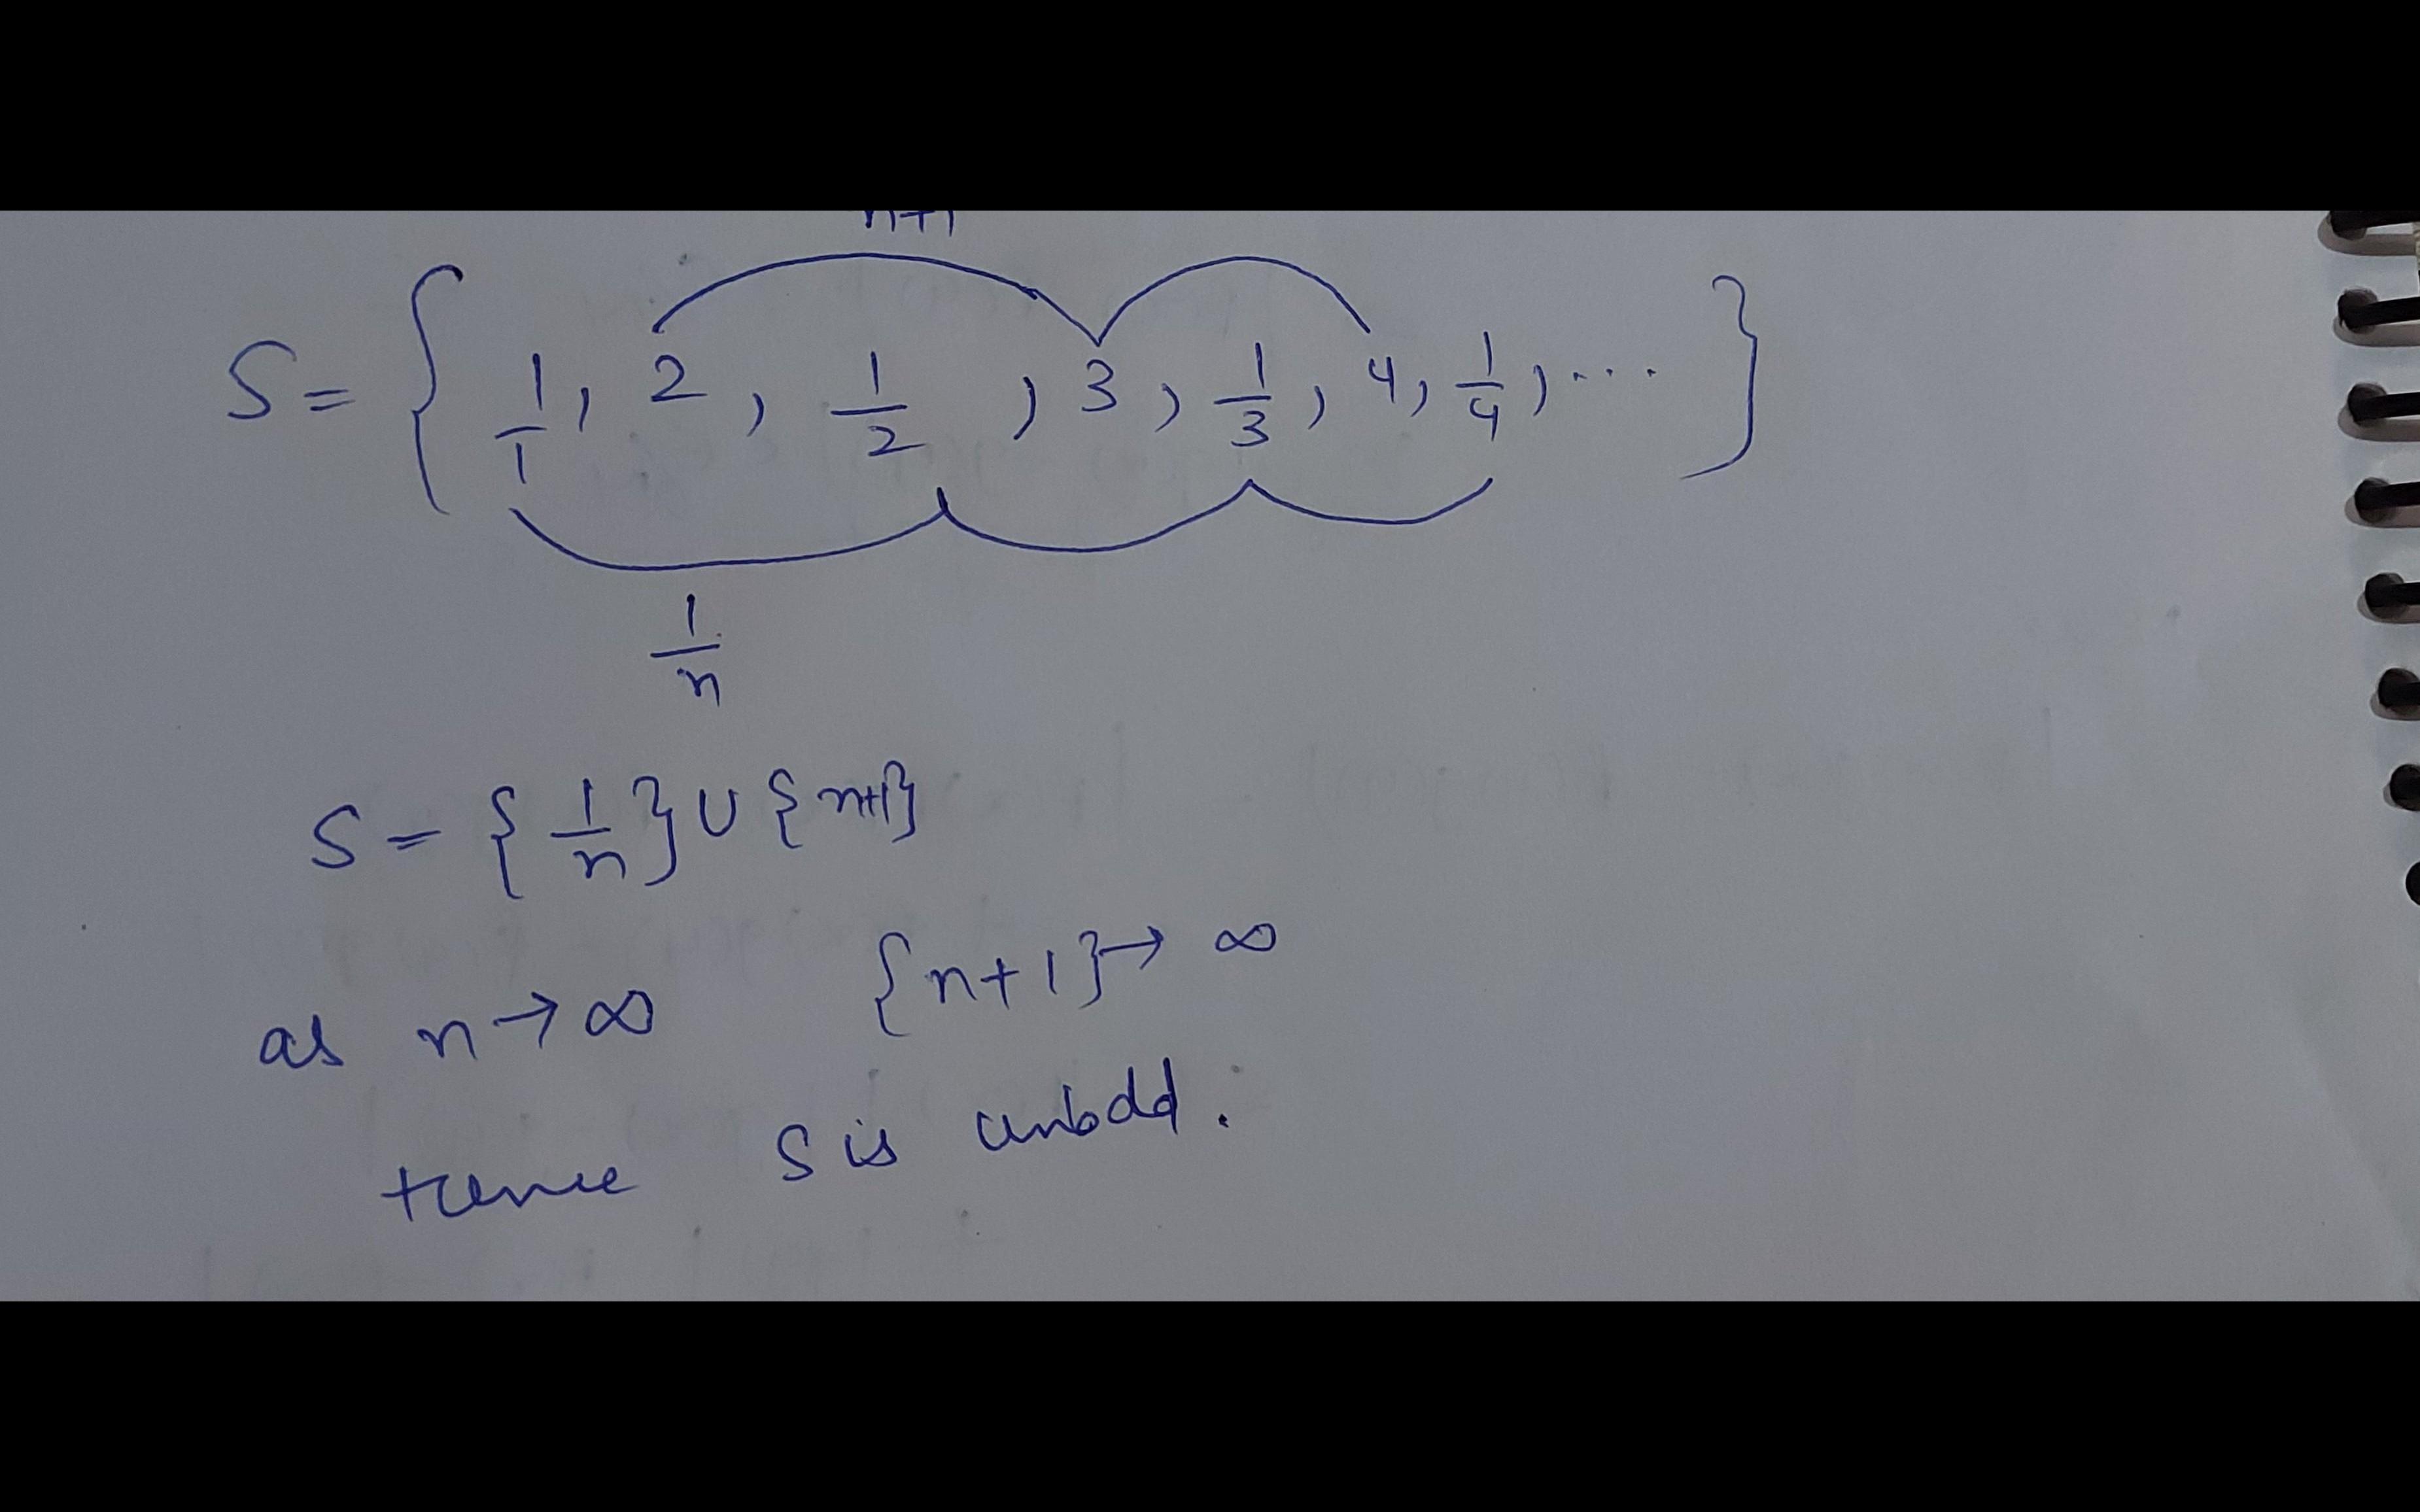 n+1
S = { 1/1, 2, 1/2, 3, 1/3, 4, 1/4, ... }
1/n
S = {1/n} ∪ {n+1}
as n → ∞ {n+1} → ∞
Hence S is unbdd.